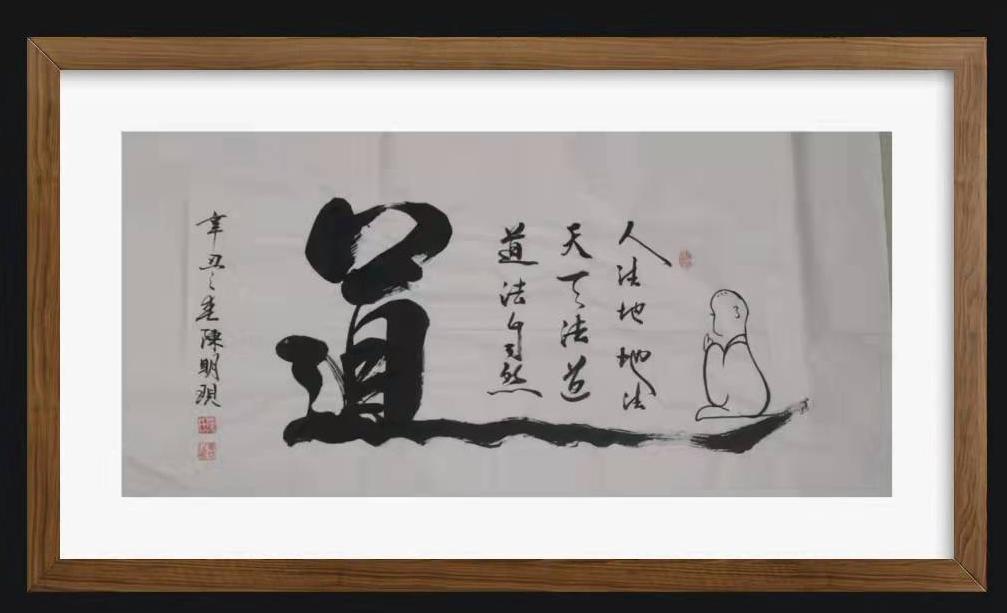 人法地地法
天天法道
道法自然
道
辛丑之春陳明